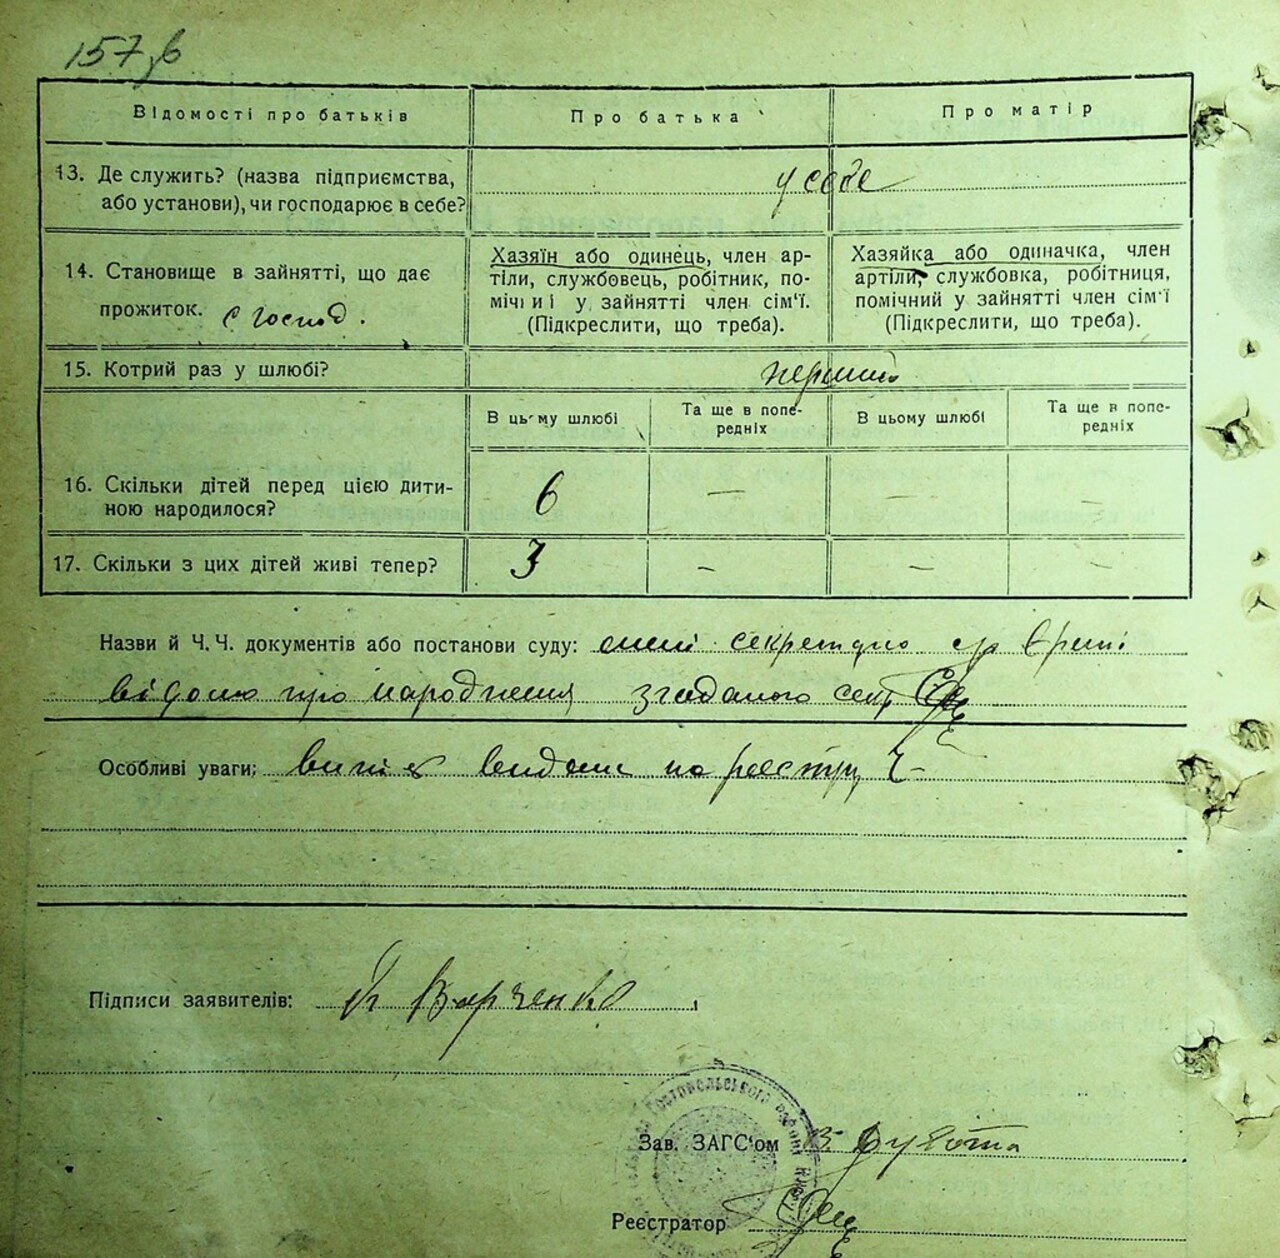 157
Відомості про батьків
Про батька
Про матір
13. Де служить? (назва підприємства,
або установи), чи господарює в себе?
у себе
14. Становище в зайнятті, що дає
прожиток. є господ.
Хазяїн або одинець, член ар-
тіли, службовець, робітник, по-
мічний у зайнятті член сім'ї.
(Підкреслити, що треба).
Хазяйка або одиначка, член
артіли, службовка, робітниця,
помічний у зайнятті член сім'ї
(Підкреслити, що треба).
15. Котрий раз у шлюбі?
перший
В цьому шлюбі
Та ще в попе-
редніх
В цьому шлюбі
Та ще в попе-
редніх
16. Скільки дітей перед цією дити-
ною народилося?
6 — — —
17. Скільки з цих дітей живі тепер?
3 — — —
Назви й Ч. Ч. документів або постанови суду:
відомо про народження згаданого
Особливі уваги: видан по реєстру Ч-
Підписи заявителів:
Зав. ЗАГС'ом
Реєстратор